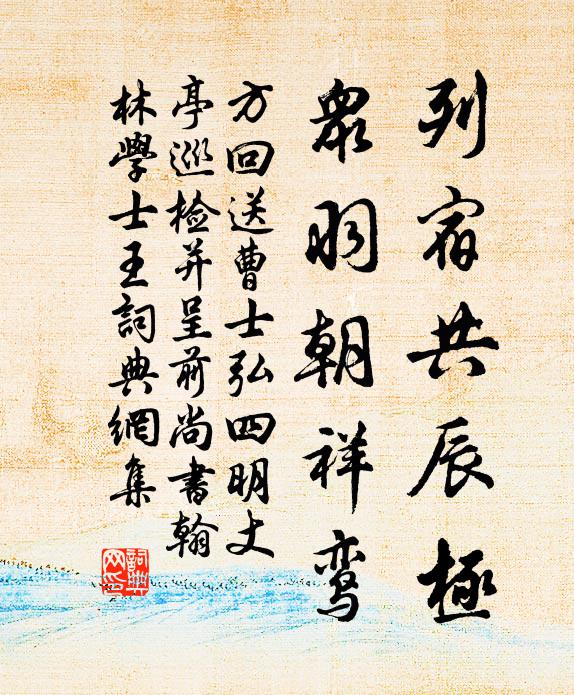 列宿共辰極
眾羽朝祥鸾
方回送曹士弘四明丈
亭巡检并呈前尚書翰
林學士王詞典網集